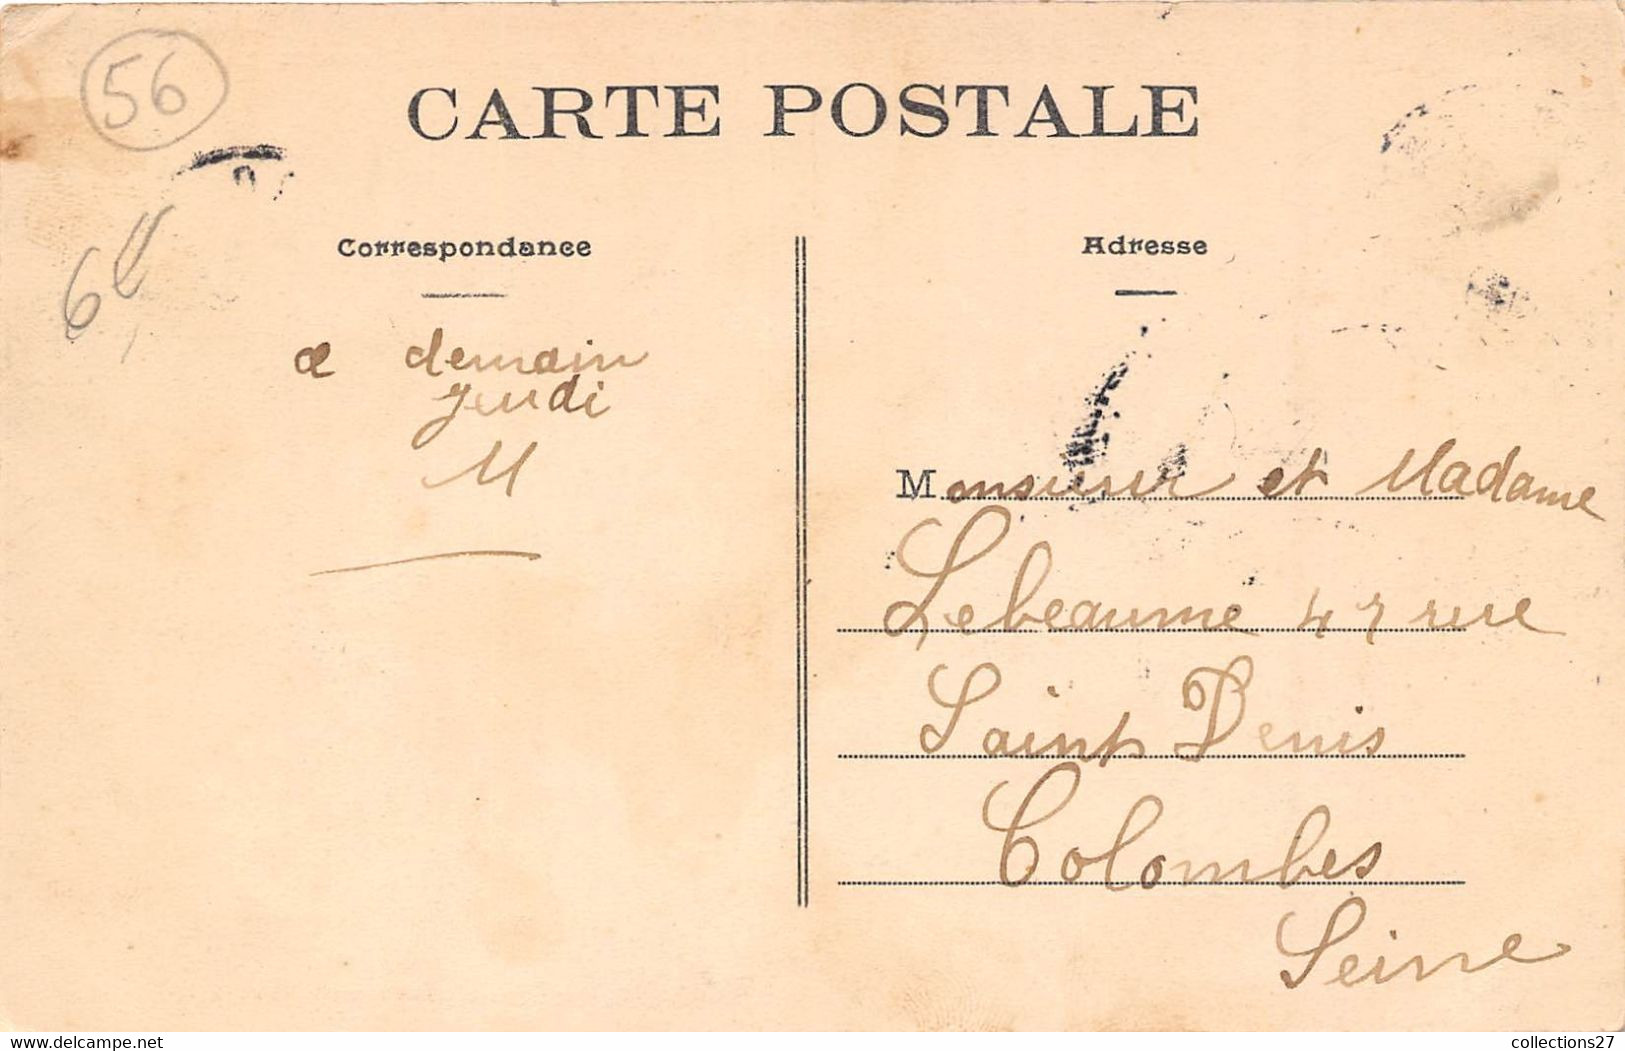 56
CARTE POSTALE
Correspondance
Adresse
a demain
jeudi
M
Monsieur et Madame
Lebeaume 47 rue
Saint Denis
Colombes
Seine
collections27